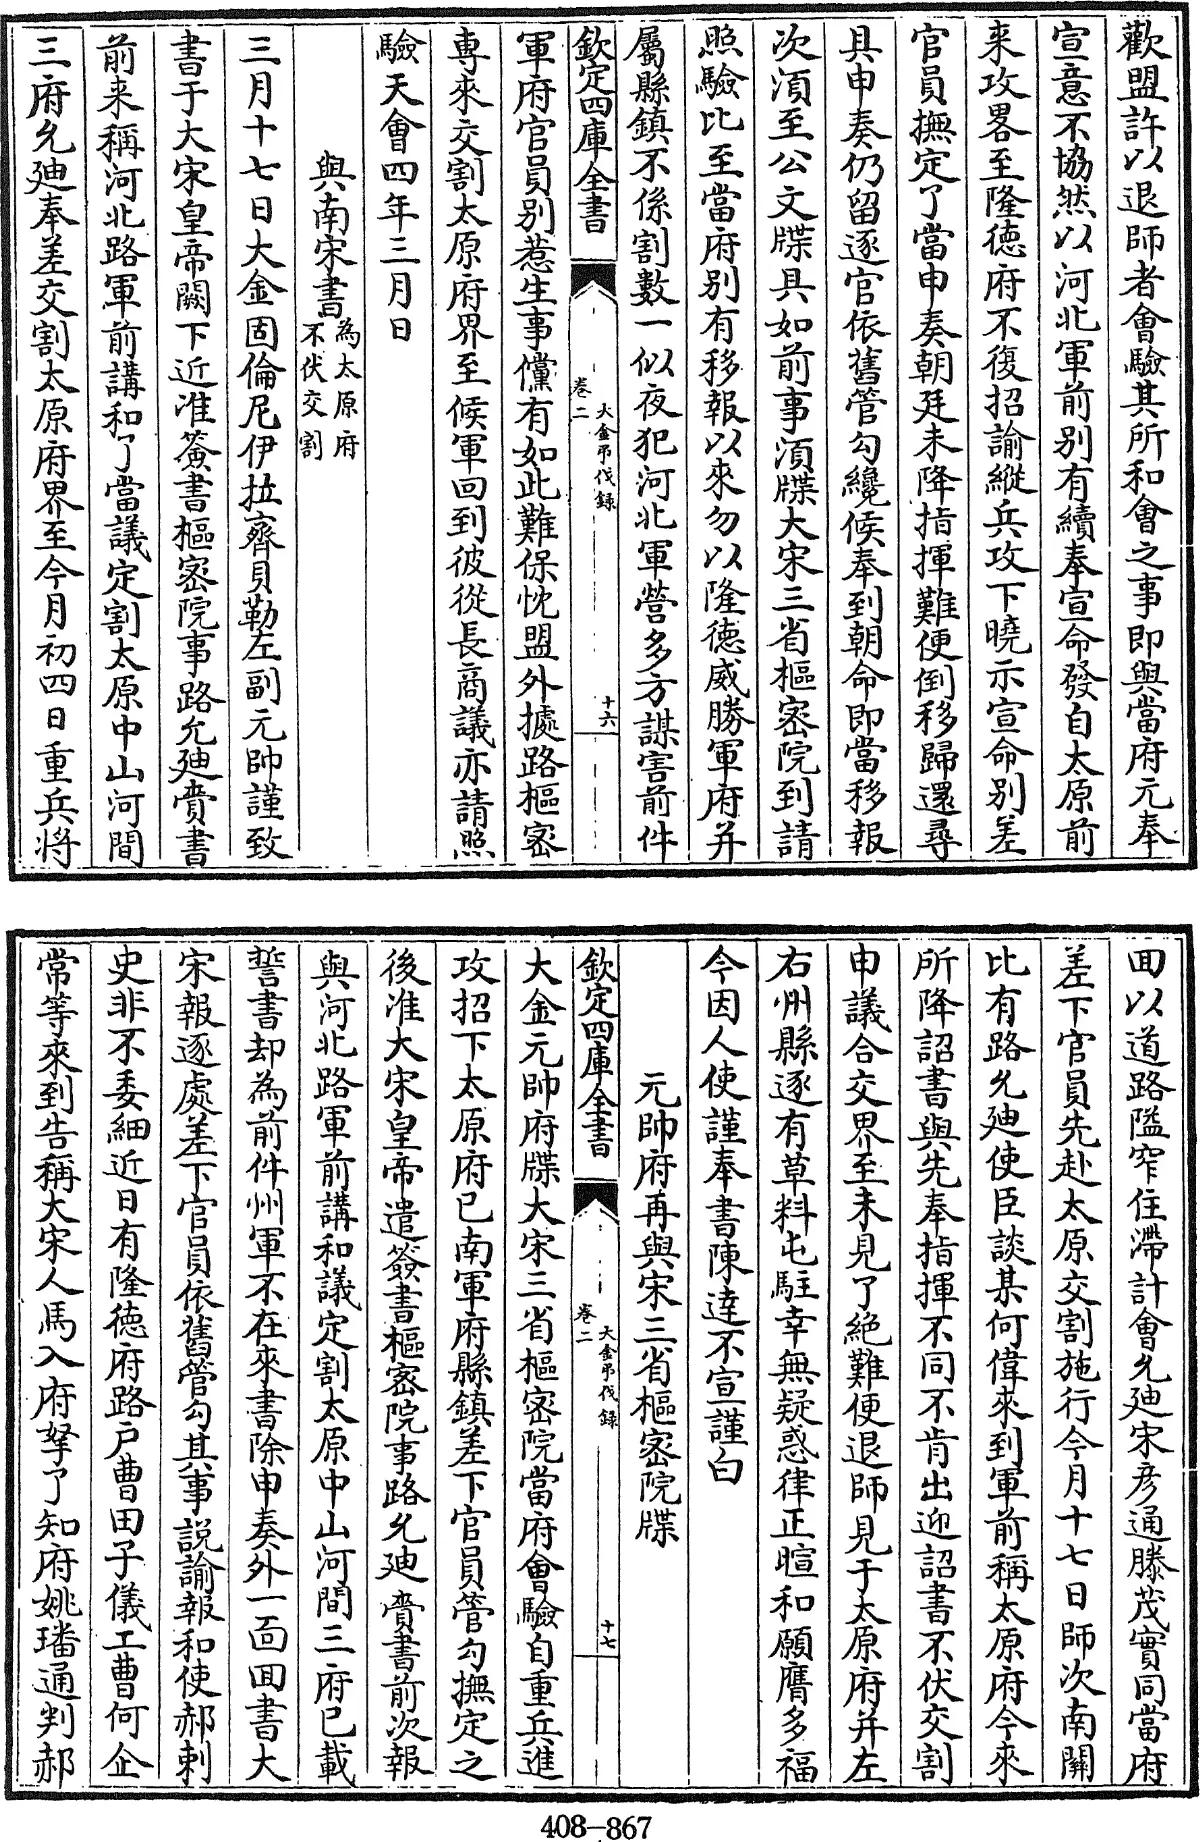 歡盟許以退師者會驗其所和會之事即與當府元奉
宣意不協然以河北軍前别有續奉宣命發自太原前
来攻畧至隆徳府不復招諭縱兵攻下曉示宣命别差
官員撫定了當申奏朝廷未降指揮難便倒移歸還尋
具申奏仍留逐官依舊管勾纔候奉到朝命即當移報
次湏至公文牒具如前事湏牒大宋三省樞密院到請
照驗比至當府别有移報以來勿以隆徳威勝軍府并
屬縣鎮不係割數一似夜犯河北軍營多方謀害前件
欽定四庫全書
大金弔伐録
卷二
十六
軍府官員别惹生事儻有如此難保忱盟外㨿路樞密
専來交割太原府界至候軍回到彼從長商議亦請照
驗天會四年三月日
與南宋書為太原府
不伏交割
三月十七日大金固倫尼伊拉齊貝勒左副元帥謹致
書于大宋皇帝闕下近准簽書樞密院事路允廸賫書
前来稱河北路軍前講和了當議定割太原中山河間
三府允廸奉差交割太原府界至今月初四日重兵將
回以道路隘窄住滯計會允廸宋彦通滕茂實同當府
差下官員先赴太原交割施行今月十七日師次南關
比有路允廸使臣談某何偉來到軍前稱太原府今來
所降詔書與先奉指揮不同不肯出迎詔書不伏交割
申議合交界至未見了絶難便退師見于太原府并左
右州縣逐有草料屯駐幸無疑惑律正暄和願膺多福
今因人使謹奉書陳達不宣謹白
元帥府再與宋三省樞密院牒
欽定四庫全書
大金弔伐録
卷二
十七
大金元帥府牒大宋三省樞密院當府會驗自重兵進
攻招下太原府已南軍府縣鎮差下官員管勾撫定之
後准大宋皇帝遣簽書樞密院事路允廸賫書前次報
與河北路軍前講和議定割太原中山河間三府已載
誓書却為前件州軍不在來書除申奏外一面回書大
宋報逐處差下官員依舊管勾其事説諭報和使郝剌
史非不委細近日有隆德府路户曹田子儀工曹何企
常等來到告稱大宋人馬入府拏了知府姚璠通判郝
408-867